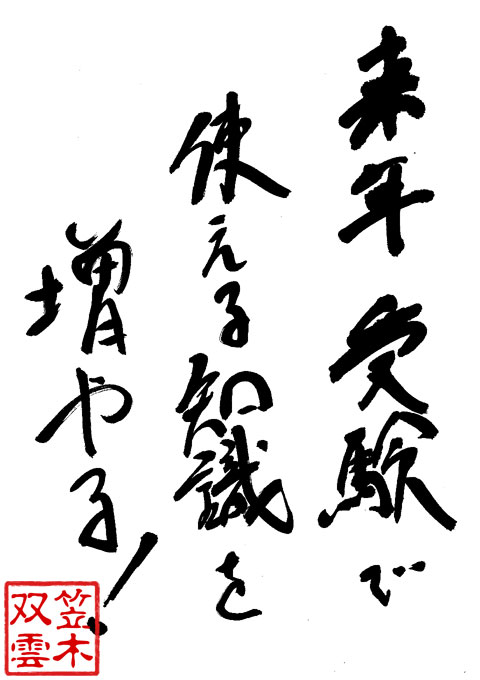 来年 受験で
使える知識を
増やる!
笠木
双雲